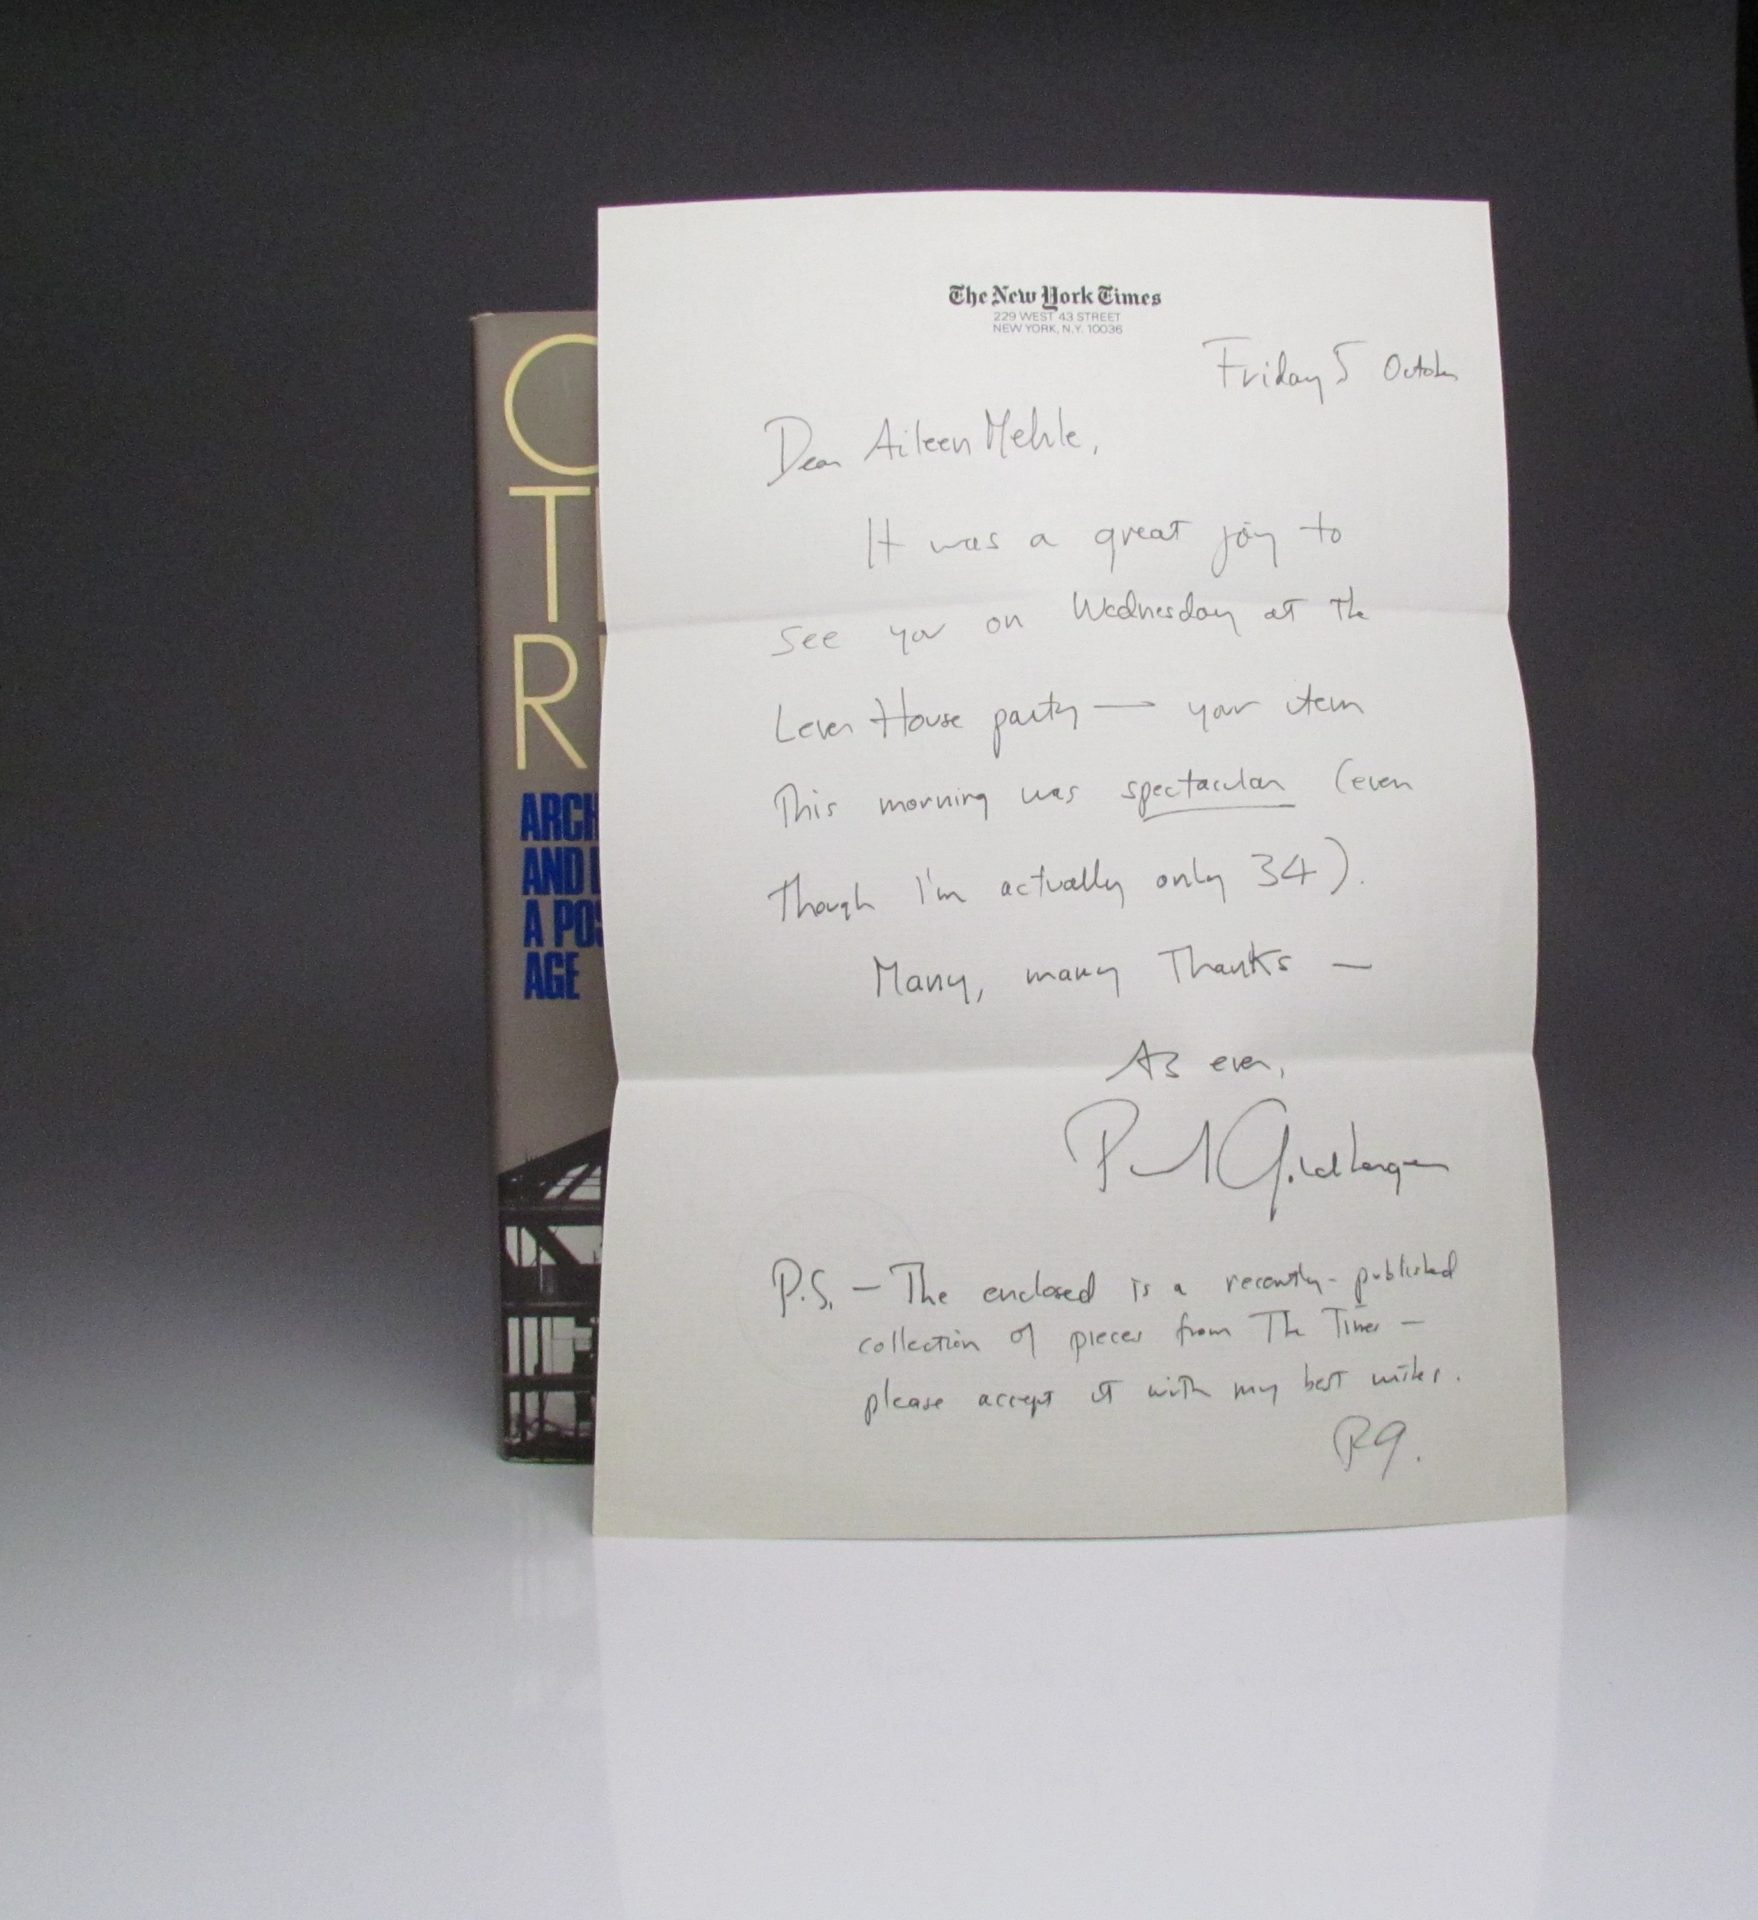 O
T
R
ARCH
AND
A POS
AGE
The New York Times
229 WEST 43 STREET
NEW YORK, N.Y. 10036
Friday 5 October
Dear Aileen Mehle,
It was a great joy to
see you on Wednesday at the
Lever House party — your item
This morning was spectacular (even
though I'm actually only 34).
Many, many Thanks —
As ever,
Paul Goldberger
P.S. — The enclosed is a recently-published
collection of pieces from The Times —
please accept it with my best wishes.
P.G.